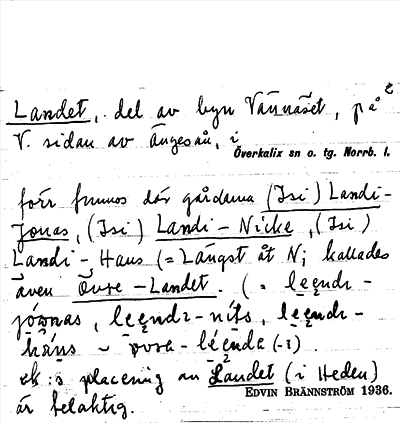 Landet, del av byn Vännäset, på
V. sidan av Ängesån, i
Överkalix sn o. tg. Norrb. l.
förr funnos där gårdarna (Isi) Landi-
Jonas, (Isi) Landi-Nicke, (Isi)
Landi-Hans (= Längst åt N; kallades
även Övre-Landet. (= leendi-
jónnas, leendi-nits, leendi-
háns ~ övre-léende (-i)
ek:s placering av Landet (i Heden)
är felaktig.
EDVIN BRÄNNSTRÖM 1936.